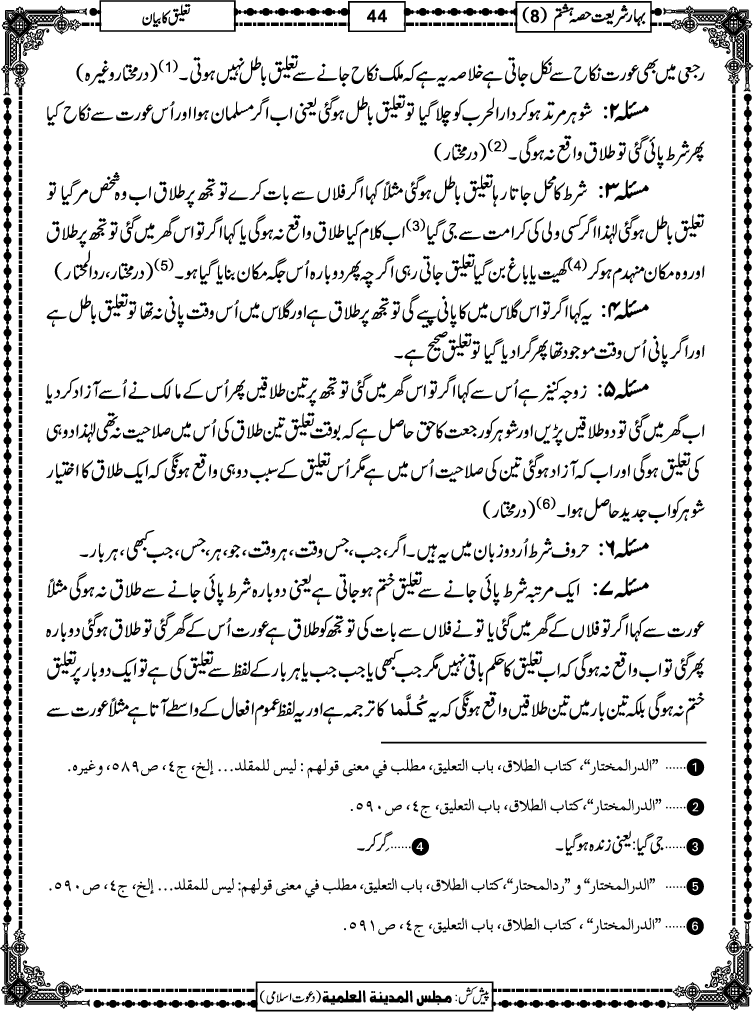 بہارِشریعت حصہ ہشتم (8)
44
تعلیق کا بیان
رجعی میں بھی عورت نکاح سے نکل جاتی ہے خلاصہ یہ ہے کہ ملک نکاح جانے سے تعلیق باطل نہیں ہوتی۔(1) (درمختار وغیرہ)
مسئلہ ۲: شوہر مرتد ہوکر دارالحرب کو چلا گیا تو تعلیق باطل ہوگئی یعنی اب اگر مسلمان ہوا اور اُس عورت سے نکاح کیا
پھر شرط پائی گئی تو طلاق واقع نہ ہوگی۔(2) (درمختار)
مسئلہ ۳: شرط کا محل جاتا رہا تعلیق باطل ہوگئی مثلاً کہا اگر فلاں سے بات کرے تو تجھ پر طلاق اب وہ شخص مرگیا تو
تعلیق باطل ہوگئی لہٰذا اگر کسی ولی کی کرامت سے جی گیا(3) اب کلام کیا طلاق واقع نہ ہوگی یا کہا اگر تو اس گھر میں گئی تو تجھ پر طلاق
اور وہ مکان منہدم ہوکر(4) کھیت یا باغ بن گیا تعلیق جاتی رہی اگرچہ پھر دوبارہ اُس جگہ مکان بنایا گیا ہو۔(5) (درمختار، ردالمحتار)
مسئلہ ۴: یہ کہا اگر تو اس گلاس میں کا پانی پیے گی تو تجھ پر طلاق ہے اور گلاس میں اُس وقت پانی نہ تھا تو تعلیق باطل ہے
اور اگر پانی اُس وقت موجود تھا پھر گرادیا گیا تو تعلیق صحیح ہے۔
مسئلہ ۵: زوجہ کنیز ہے اُس سے کہا اگر تو اس گھر میں گئی تو تجھ پر تین طلاقیں پھر اُس کے مالک نے اُسے آزاد کردیا
اب گھر میں گئی تو دو طلاقیں پڑیں اور شوہر کو رجعت کا حق حاصل ہے کہ بوقت تعلیق تین طلاق کی اُس میں صلاحیت نہ تھی لہٰذا دو ہی
کی تعلیق ہوگی اور اب کہ آزاد ہوگئی تین کی صلاحیت اُس میں ہے مگر اُس تعلیق کے سبب دو ہی واقع ہونگی کہ ایک طلاق کا اختیار
شوہر کو اب جدید حاصل ہوا۔(6) (درمختار)
مسئلہ ۶: حروف شرط اُردو زبان میں یہ ہیں۔ اگر، جب، جس وقت، ہر وقت، جو، ہر، جس، جب کبھی، ہر بار۔
مسئلہ ۷: ایک مرتبہ شرط پائی جانے سے تعلیق ختم ہوجاتی ہے یعنی دوبارہ شرط پائی جانے سے طلاق نہ ہوگی مثلاً
عورت سے کہا اگر تو فلاں کے گھر میں گئی یا تو نے فلاں سے بات کی تو تجھ کو طلاق ہے عورت اُس کے گھر گئی تو طلاق ہوگئی دوبارہ
پھر گئی تو اب واقع نہ ہوگی کہ اب تعلیق کا حکم باقی نہیں مگر جب کبھی یا جب جب یا ہر بار کے لفظ سے تعلیق کی ہے تو ایک دو بار پر تعلیق
ختم نہ ہوگی بلکہ تین بار میں تین طلاقیں واقع ہونگی کہ یہ کُلَّمَا کا ترجمہ ہے اور یہ لفظ عموم افعال کے واسطے آتا ہے مثلاً عورت سے
1 ...... "الدرالمختار"، كتاب الطلاق، باب التعليق، مطلب في معنى قولهم: ليس للمقلد... إلخ، ج٤، ص٥٨٩، وغيره.
2 ...... "الدرالمختار"، كتاب الطلاق، باب التعليق، ج٤، ص٥٩٠.
3 ...... جی گیا: یعنی زندہ ہوگیا۔ 4 ...... گِر کر۔
5 ...... "الدرالمختار" و "ردالمحتار"، كتاب الطلاق، باب التعليق، مطلب في معنى قولهم: ليس للمقلد... إلخ، ج٤، ص٥٩٠.
6 ...... "الدرالمختار"، كتاب الطلاق، باب التعليق، ج٤، ص٥٩١.
پیش کش: مجلس المدینۃ العلمیۃ (دعوت اسلامی)